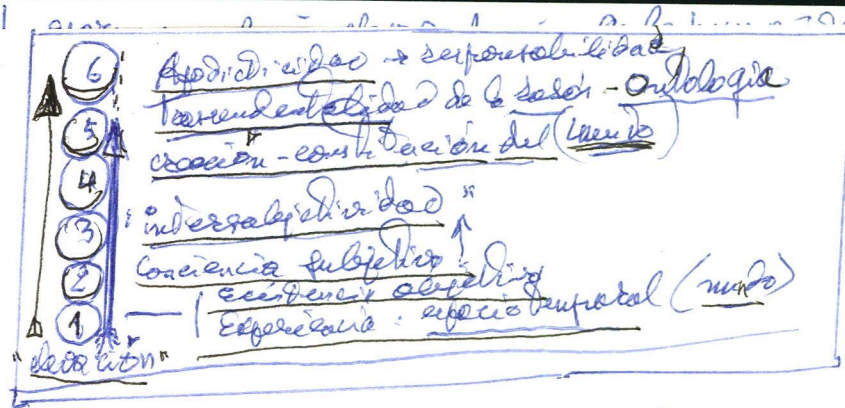 6 Apodicticidad → responsabilidad
Trascendentalidad de la razón - ontología
5 creación - constitución del (mundo)
4
3 intersubjetividad"
2 Conciencia subjetiva
existencia objetiva
1 Experiencia: espacio temporal (mundo)
"elevación"